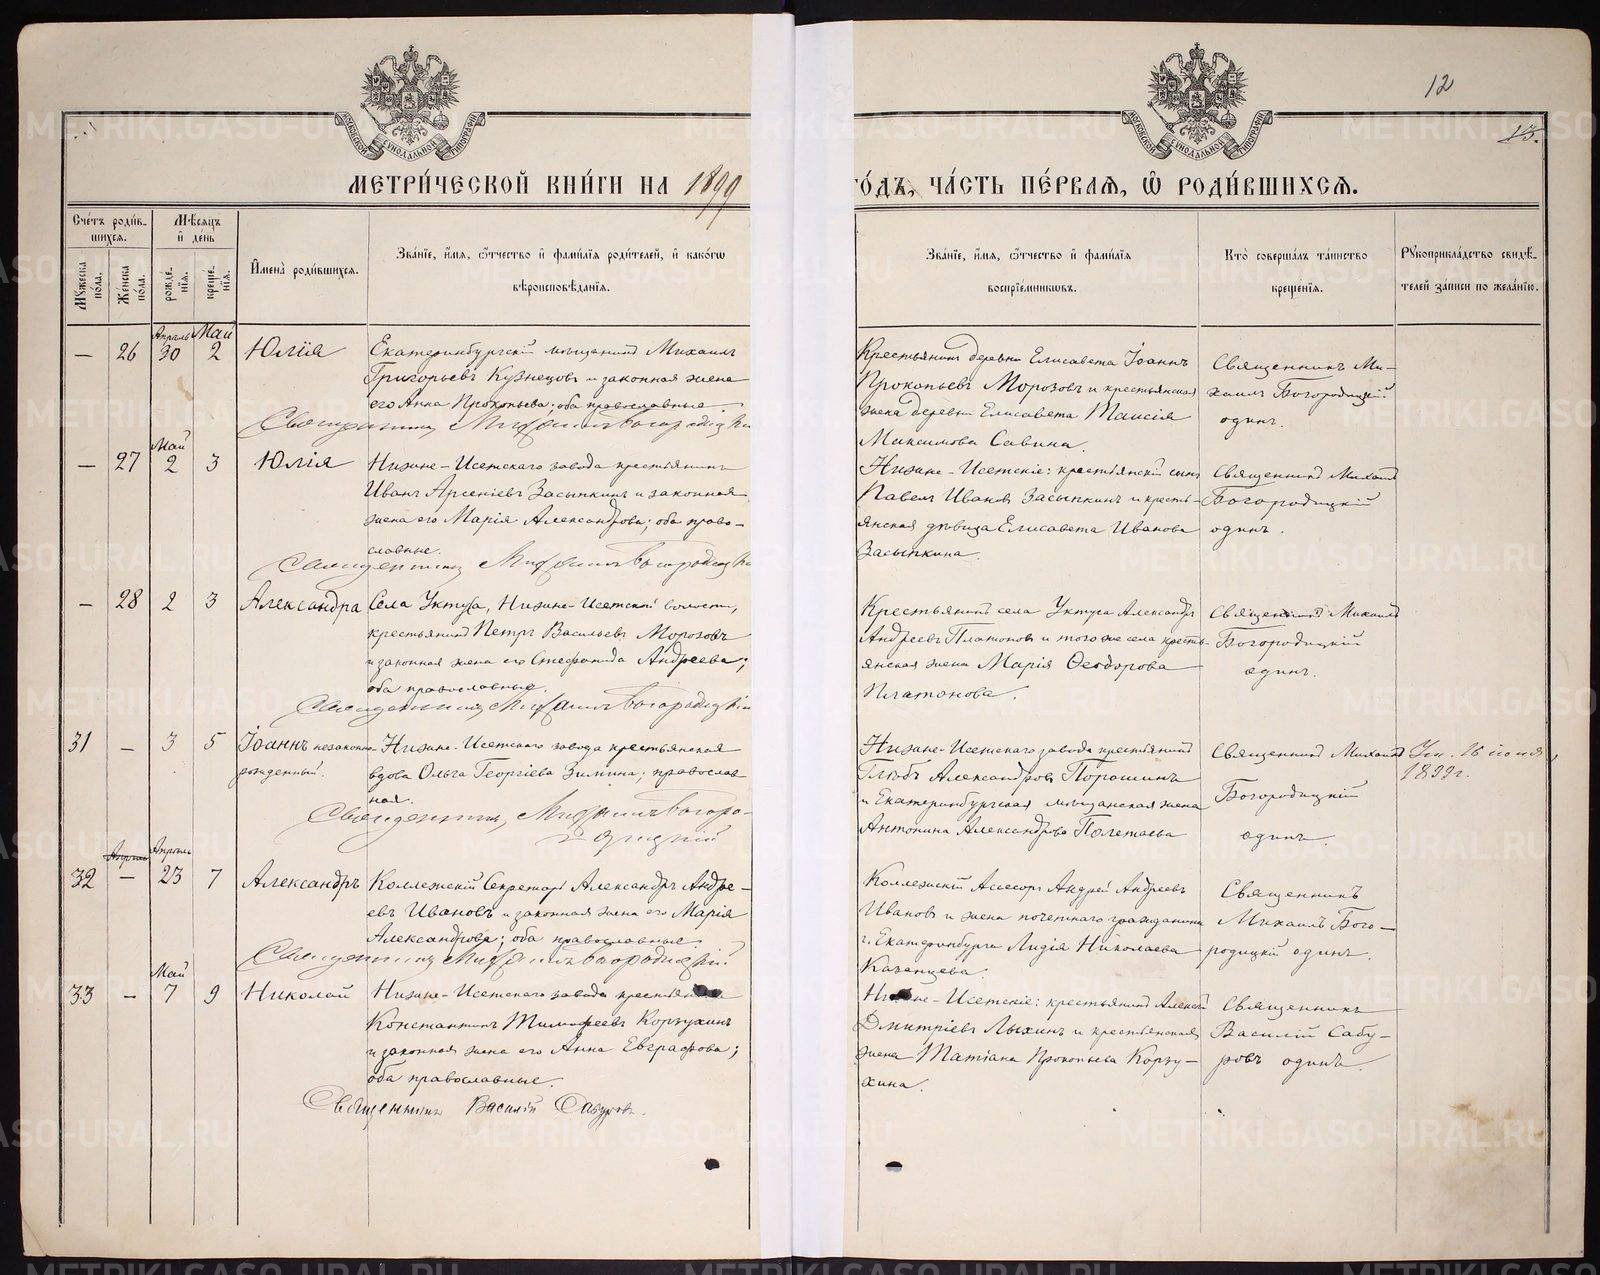 12
13.
МОСКОВСКОЙ СѴНОДАЛЬНОЙ ТИПОГРАФИИ
МОСКОВСКОЙ СѴНОДАЛЬНОЙ ТИПОГРАФИИ
МЕТРИ́ЧЕСКОЙ КНИ́ГИ НА 1899
ГО́ДЪ, ЧА́СТЬ ПЕ́РВАѦ, Ѡ҆ РОДИ́ВШИХСѦ.
Сче́тъ роди́в-
шихсѧ.
Мꙋжеска по́ла.
Же́нска по́ла.
Мѣ́сѧцъ
и҆ де́нь
рожде́-нїѧ.
креще́-нїѧ.
И҆мена̀ роди́вшихсѧ.
Зва́нїе, и҆́мѧ, ѻ҆́тчество и҆ фами́лїѧ роди́телей, и҆ како́гѡ
вѣроисповѣ́данїѧ.
Зва́нїе, и҆́мѧ, ѻ҆́тчество и҆ фами́лїѧ
воспрїе́мниковъ.
Кто̀ соверша́лъ та́инство
креще́нїѧ.
Рꙋкоприкла́дство свидѣ́-
телей за́писи по жела́нїю.
Апрѣль Май
— 26 30 2 Юлія
Екатеринбургскій мѣщанинъ Михаилъ
Григорьевъ Кузнецовъ и законная жена
его Анна Прокопьева; оба православные.
Священникъ Михаилъ Богородицкій
Крестьянинъ деревни Елисавета Іоаннъ
Прокопьевъ Морозовъ и крестьянская
жена деревни Елисавета Таисія
Максимова Савина.
Священникъ Ми-
хаилъ Богородицкій
одинъ.
Май
— 27 2 3 Юлія
Нижне-Исетскаго завода крестьянинъ
Иванъ Арсеніевъ Засыпкинъ и законная
жена его Марія Александрова; оба право-
славные.
Священникъ Михаилъ Богородицкій
Нижне-Исетскіе: крестьянскій сынъ
Павелъ Ивановъ Засыпкинъ и кресть-
янская дѣвица Елисавета Иванова
Засыпкина.
Священникъ Михаилъ
Богородицкій
одинъ.
— 28 2 3 Александра
Села Уктуса, Нижне-Исетской волости,
крестьянинъ Петръ Васильевъ Морозовъ
и законная жена его Стефанида Андреева;
оба православные.
Священникъ Михаилъ Богородицкій
Крестьянинъ села Уктуса Александръ
Андреевъ Платоновъ и того же села кресть-
янская жена Марія Ѳеодорова
Платонова.
Священникъ Михаилъ
Богородицкій
одинъ.
31 — 3 5 Іоаннъ незаконно-
рожденный.
Нижне-Исетскаго завода крестьянская
вдова Ольга Георгіева Зимина; православ
ная.
Священникъ Михаилъ Богоро-
дицкій
Нижне-Исетскаго завода крестьянинъ
Глѣбъ Александровъ Порошинъ
и Екатеринбургская мѣщанская жена
Антонина Александрова Полетаева
Священникъ Михаилъ
Богородицкій
одинъ.
Ум. 16 іюня
1899г.
Апрѣль Апрѣль
32 — 23 7 Александръ
Коллежскій Секретарь Александръ Андре-
евъ Ивановъ и законная жена его Марія
Александрова; оба православные.
Священникъ Михаилъ Богородицкій
Коллежскій Ассесоръ Андрей Андреевъ
Ивановъ и жена почетнаго гражданина
г. Екатеринбурга Лидія Николаева
Казанцева.
Священникъ
Михаилъ Бого-
родицкій одинъ.
Май
33 — 7 9 Николай
Нижне-Исетскаго завода крестьянинъ
Константинъ Тимофеевъ Корзухинъ
и законная жена его Анна Евграфова;
оба православные.
Священникъ Василій Сабуровъ.
Нижне-Исетскіе: крестьянинъ Алексѣй
Дмитріевъ Лыхинъ и крестьянская
жена Татіана Прокопьева Корзу-
хина.
Священникъ
Василій Сабу-
ровъ одинъ.
METRIKI.GASO-URAL.RU